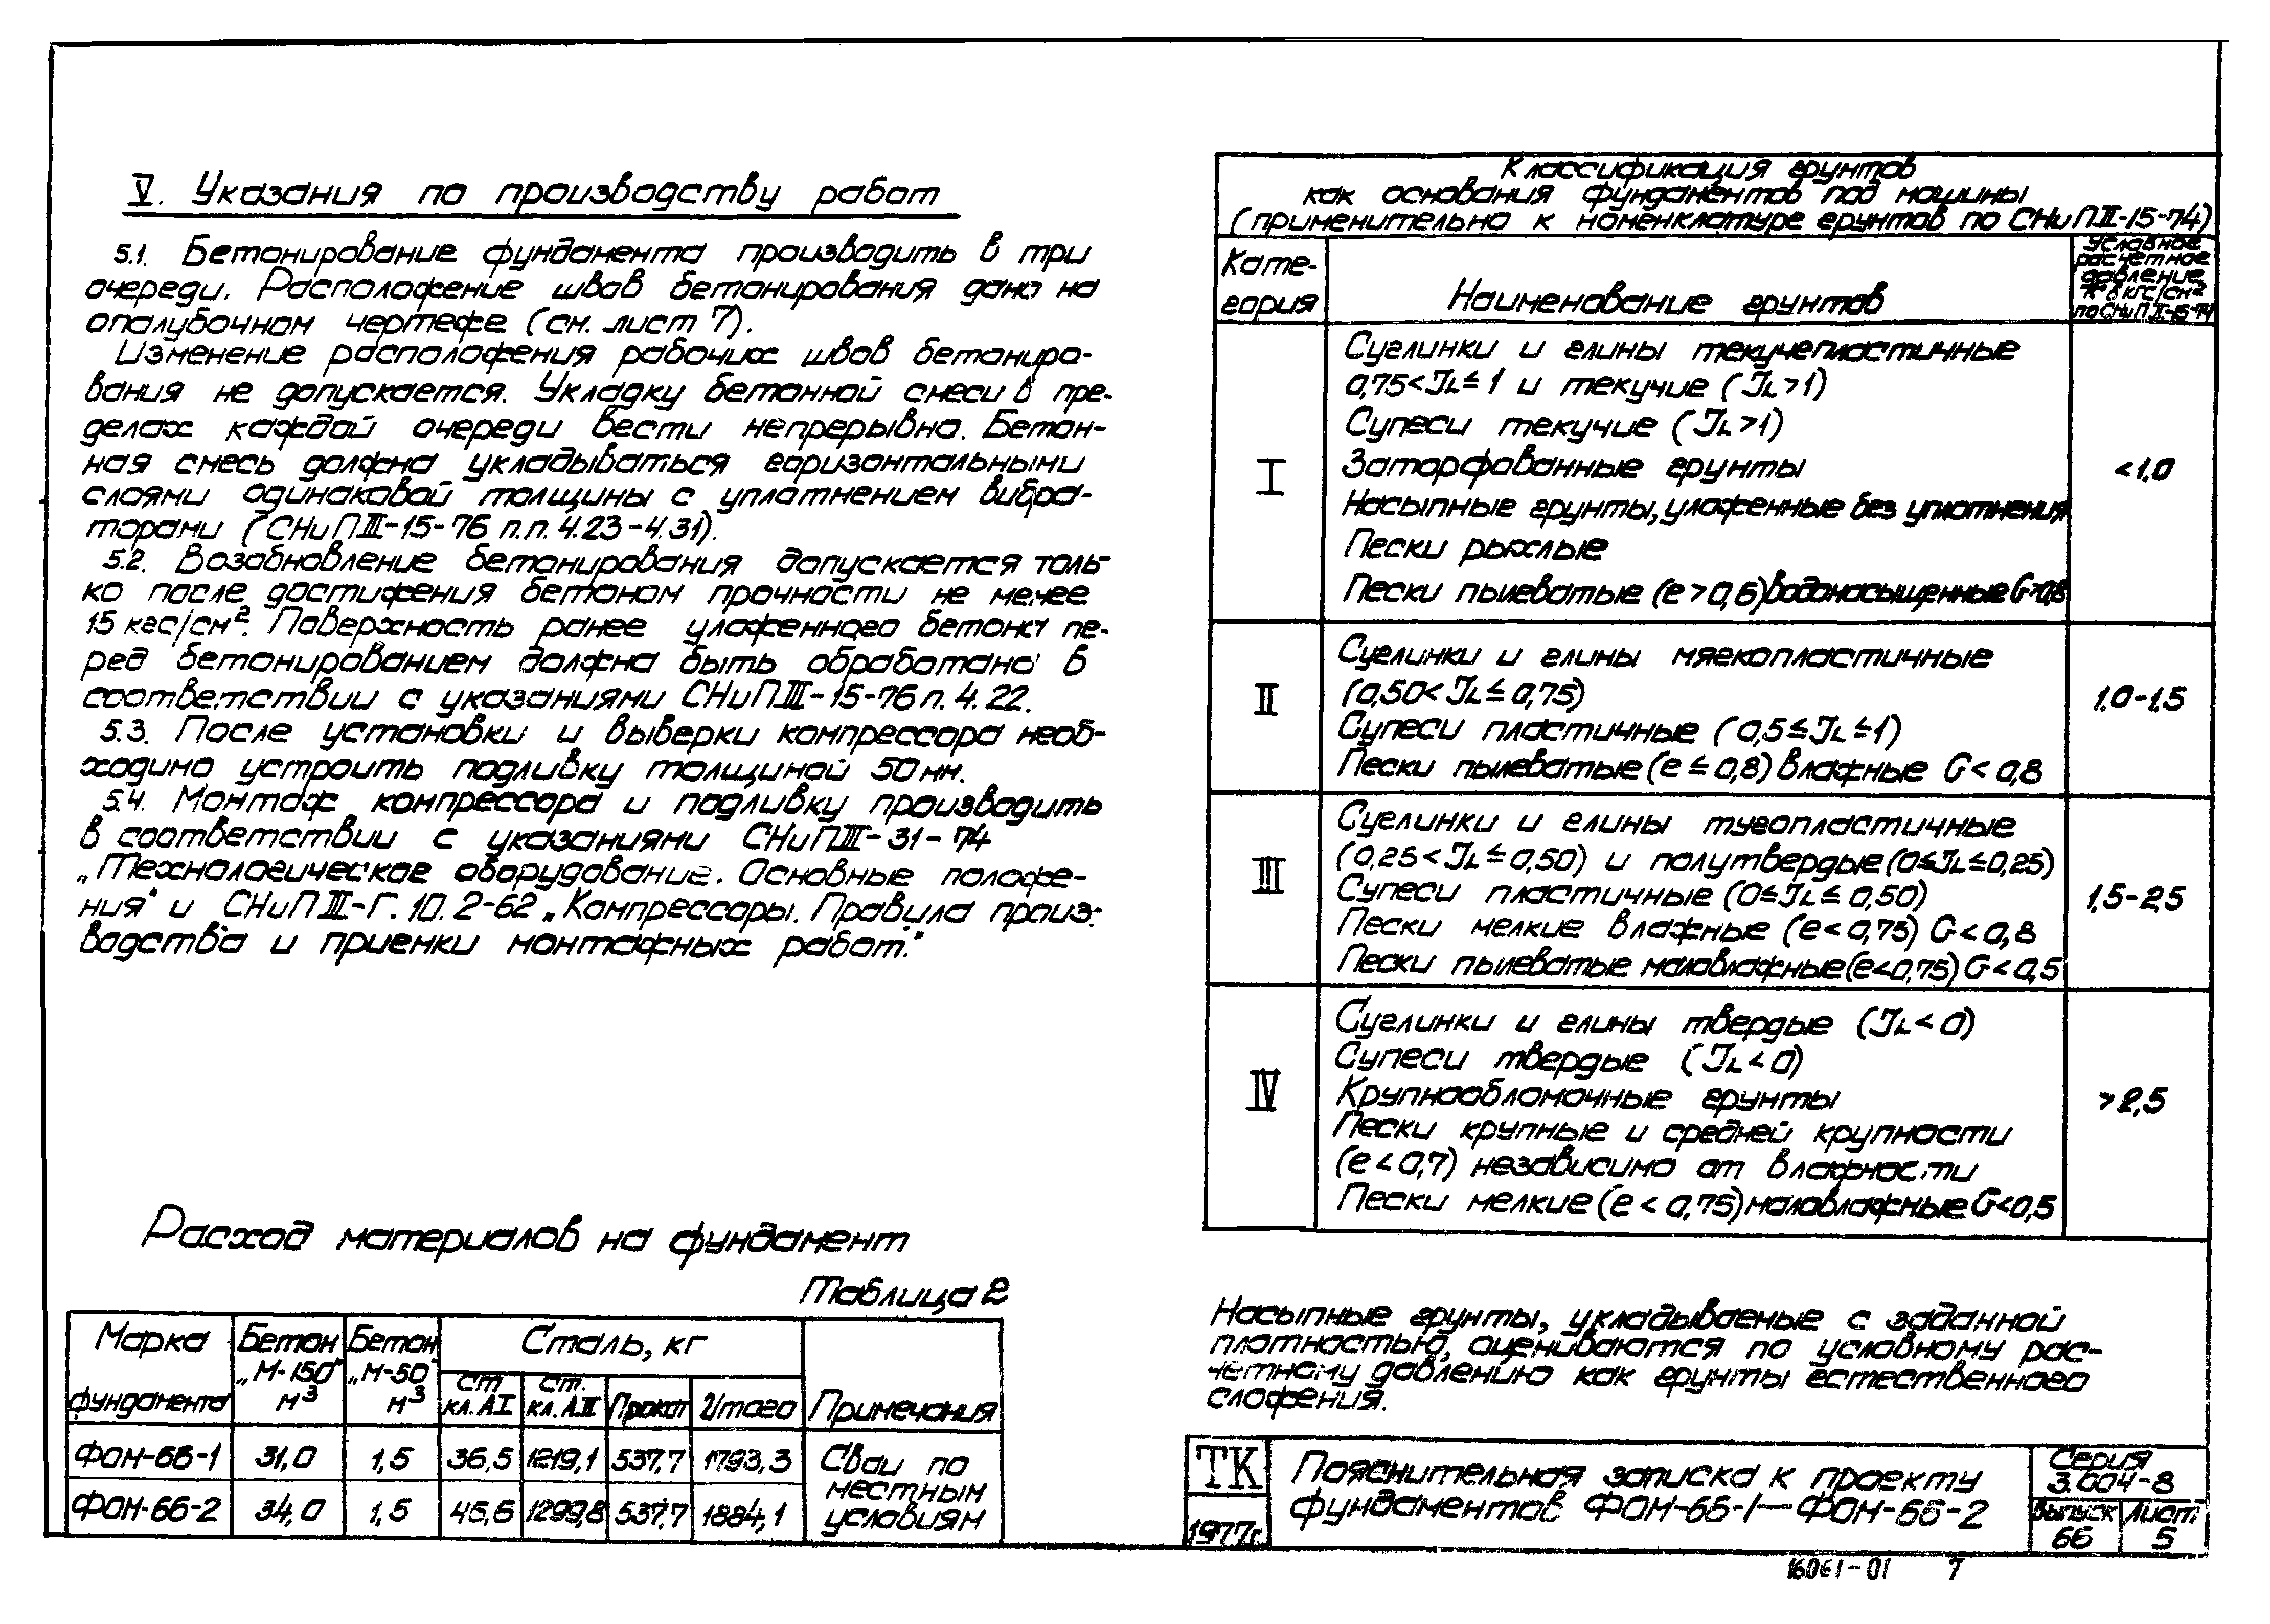 V. Указания по производству работ
5.1. Бетонирование фундамента производить в три
очереди. Расположение швов бетонирования дано на
опалубочном чертеже (см. лист 7).
Изменение расположения рабочих швов бетониро-
вания не допускается. Укладку бетонной смеси в пре-
делах каждой очереди вести непрерывно. Бетон-
ная смесь должна укладываться горизонтальными
слоями одинаковой толщины с уплотнением вибра-
торами (СНиП III-15-76 п.п. 4.23-4.31).
5.2. Возобновление бетонирования допускается толь-
ко после достижения бетоном прочности не менее
15 кгс/см². Поверхность ранее уложенного бетона пе-
ред бетонированием должна быть обработана в
соответствии с указаниями СНиП III-15-76 п. 4.22.
5.3. После установки и выверки компрессора необ-
ходимо устроить подливку толщиной 50 мм.
5.4. Монтаж компрессора и подливку производить
в соответствии с указаниями СНиП III-31-74
„Технологическое оборудование. Основные положе-
ния" и СНиП III-Г.10.2-62 „Компрессоры. Правила произ-
водства и приемки монтажных работ."
Расход материалов на фундамент
Таблица 2
Марка фундамента | Бетон „М-150" м³ | Бетон „М-50" м³ | Сталь, кг | Примечания
Ст кл. АI | Ст. кл. АII | Прокат | Итого
ФОМ-66-1 | 31,0 | 1,5 | 36,5 | 1219,1 | 537,7 | 1793,3 | Сваи по местным условиям
ФОМ-66-2 | 34,0 | 1,5 | 45,6 | 1299,8 | 537,7 | 1884,1
Классификация грунтов
как основания фундаментов под машины
(применительно к номенклатуре грунтов по СНиП II-15-74)
Кате-
гория
Наименование грунтов
Условное
расчетное
давление
R° в кгс/см²
по СНиП II-15-74
I
Суглинки и глины текучепластичные
0,75<JL≤1 и текучие (JL>1)
Супеси текучие (JL>1)
Заторфованные грунты
Насыпные грунты, уложенные без уплотнения
Пески рыхлые
Пески пылеватые (e>0,6) водонасыщенные G>0,8
<1,0
II
Суглинки и глины мягкопластичные
(0,50<JL≤0,75)
Супеси пластичные (0,5≤JL≤1)
Пески пылеватые (e≤0,8) влажные G<0,8
1,0-1,5
III
Суглинки и глины тугопластичные
(0,25<JL≤0,50) и полутвердые (0≤JL≤0,25)
Супеси пластичные (0≤JL≤0,50)
Пески мелкие влажные (e<0,75) G<0,8
Пески пылеватые маловлажные (e<0,75) G<0,5
1,5-2,5
IV
Суглинки и глины твердые (JL<0)
Супеси твердые (JL<0)
Крупнообломочные грунты
Пески крупные и средней крупности
(e<0,7) независимо от влажности
Пески мелкие (e<0,75) маловлажные G<0,5
>2,5
Насыпные грунты, укладываемые с заданной
плотностью, оцениваются по условному рас-
четному давлению как грунты естественного
сложения.
ТК
1977г.
Пояснительная записка к проекту
фундаментов ФОМ-66-1—ФОМ-66-2
Серия
3.004-8
Выпуск
66
Лист
5
16061-01 7